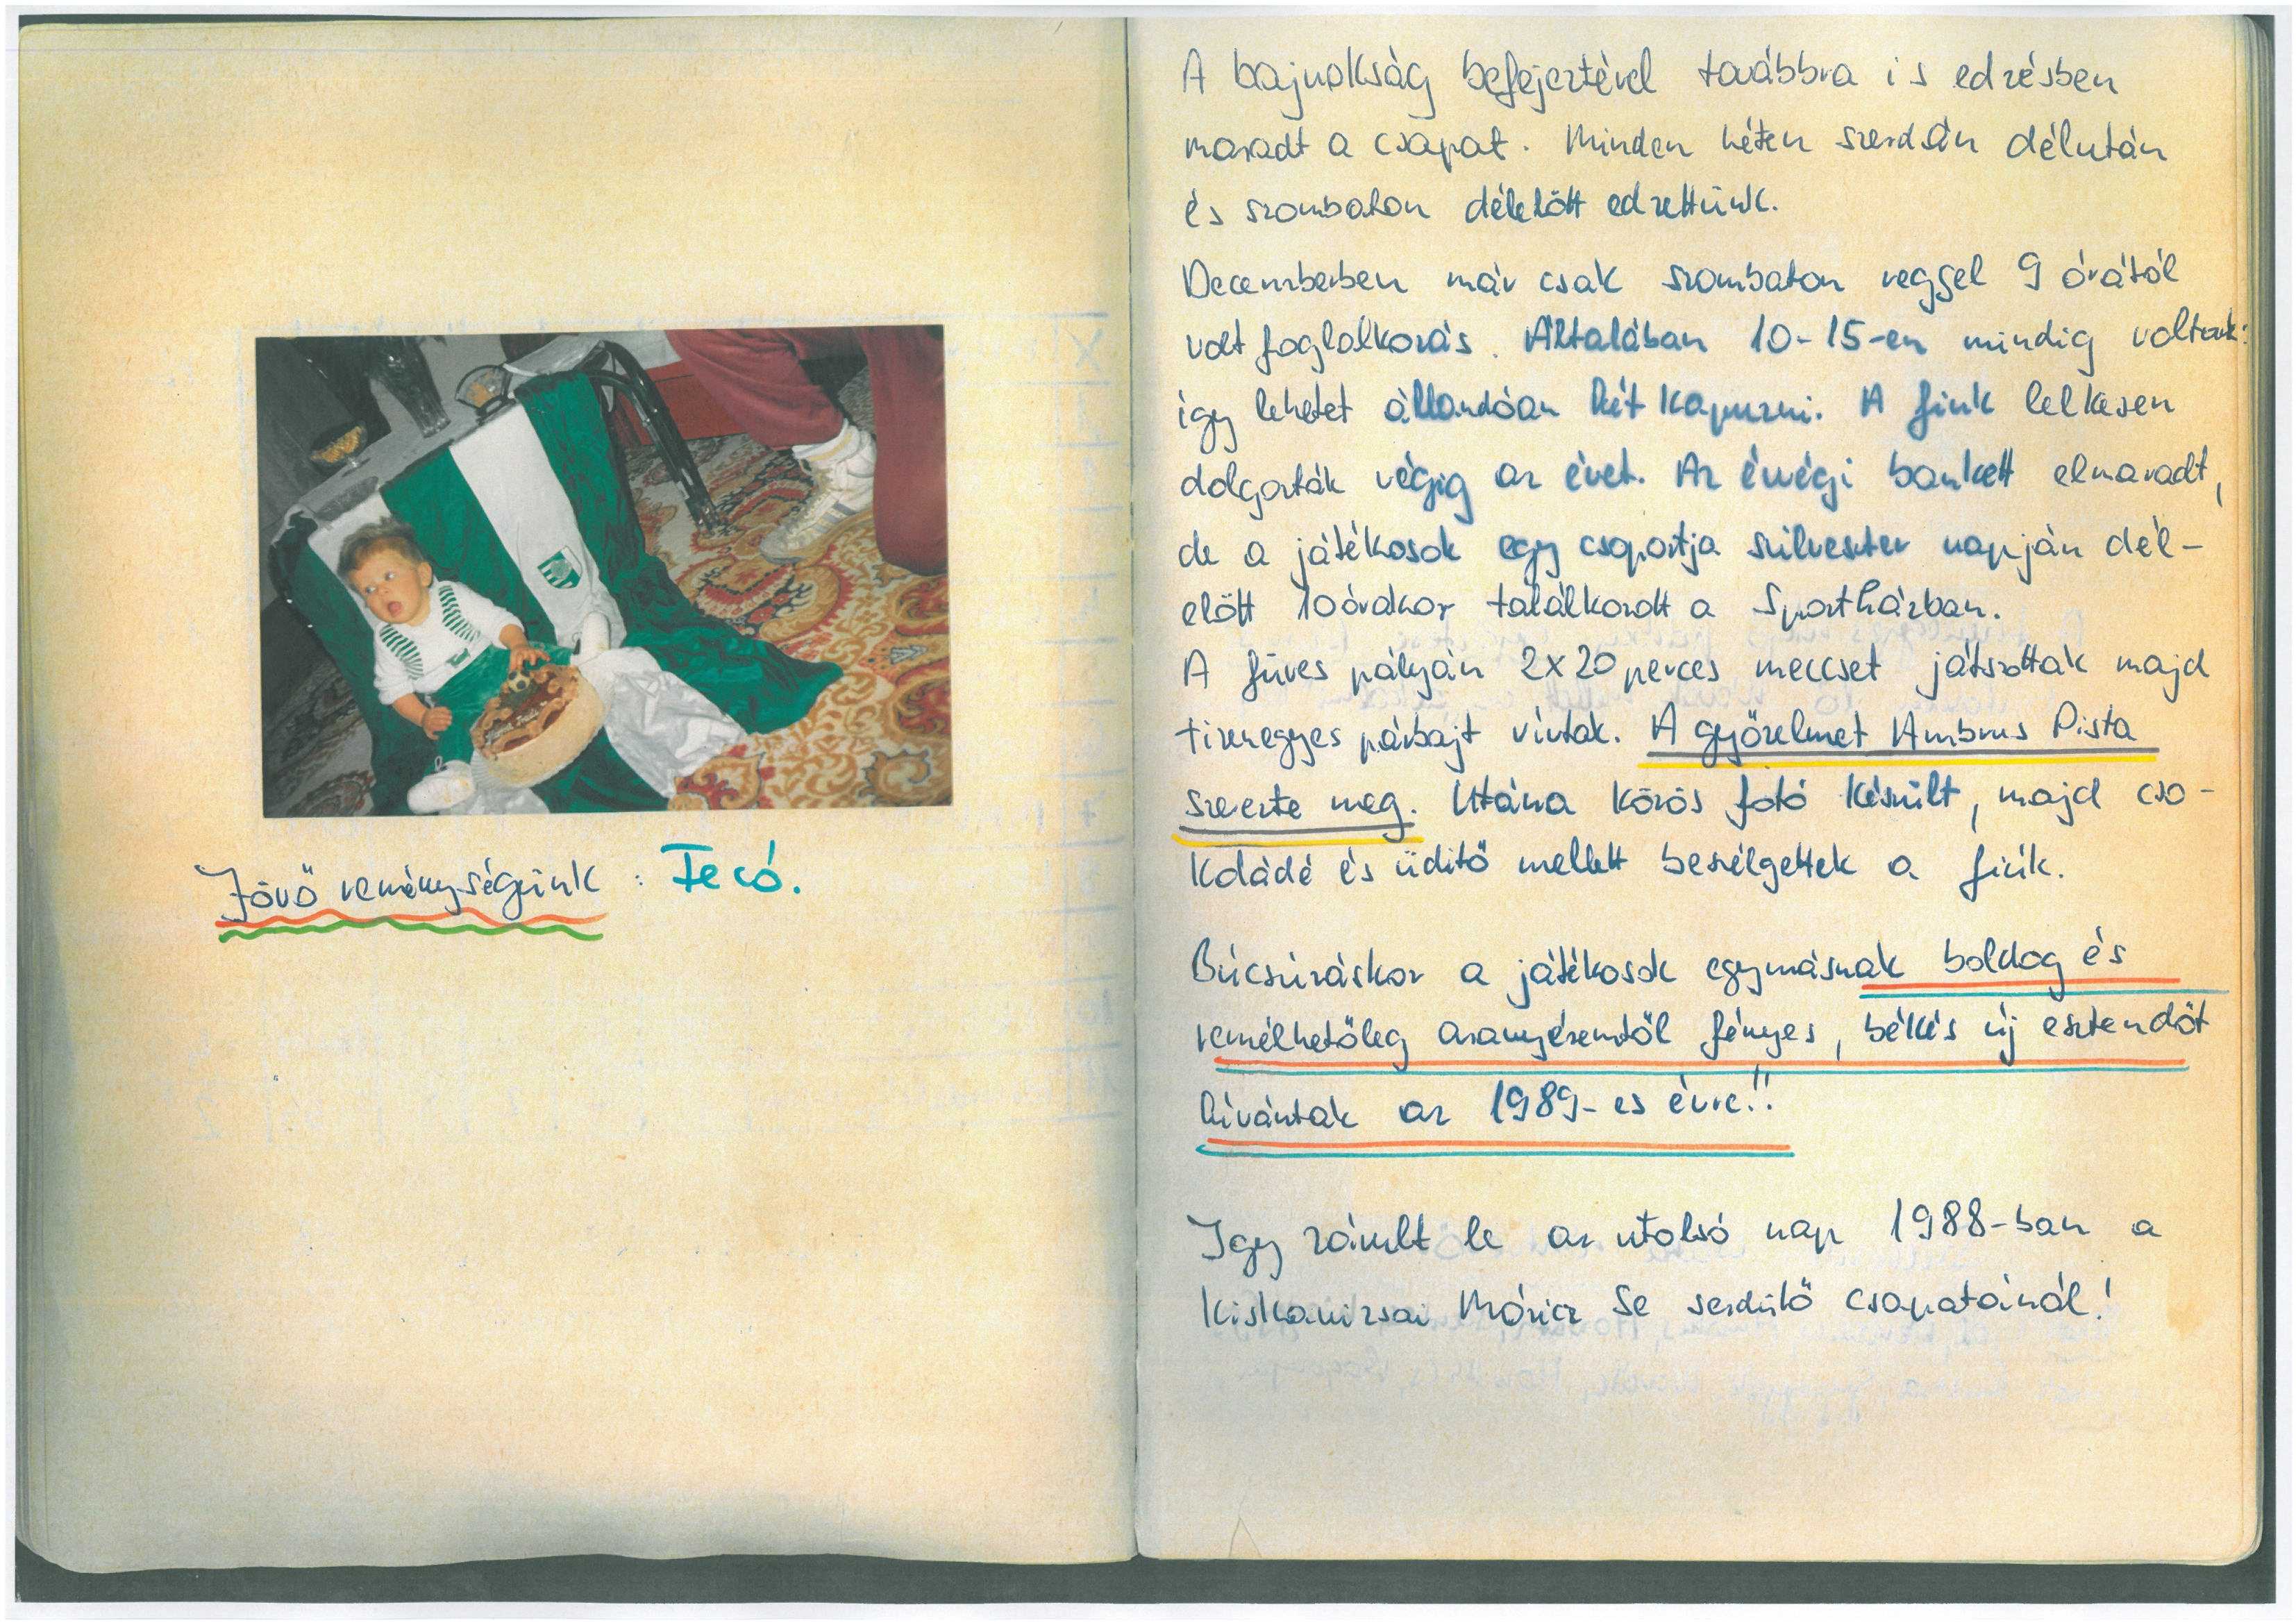 Jövő reménységeink : Fecó.
A bajnokság befejeztével továbbra is edzésben
maradt a csapat. Minden héten szerdán délután
és szombaton délelőtt edzettünk.
Decemberben már csak szombaton reggel 9 órától
volt foglalkozás. Általában 10-15-en mindig voltunk:
így lehetet állandóan két kapuzni. A fiúk lelkesen
dolgozták végig az évet. Az évvégi bankett elmaradt,
de a játékosok egy csoportja szilveszter napján dél-
előtt 10 órakor találkozott a Sportházban.
A füves pályán 2x20 perces meccset játszottak majd
tizenegyes párbajt vívtak. A győzelmet Ambrus Pista
szerezte meg. Utána közös fotó készült, majd cso-
koládé és üdítő mellett beszélgettek a fiúk.
Búcsúzáskor a játékosok egymásnak boldog és
remélhetőleg aranyéremtől fényes, békés új esztendőt
kívántak az 1989-es évre!!
Igy zárult le az utolsó nap 1988-ban a
Kiskanizsai Móricz Se serdülő csapatainál!